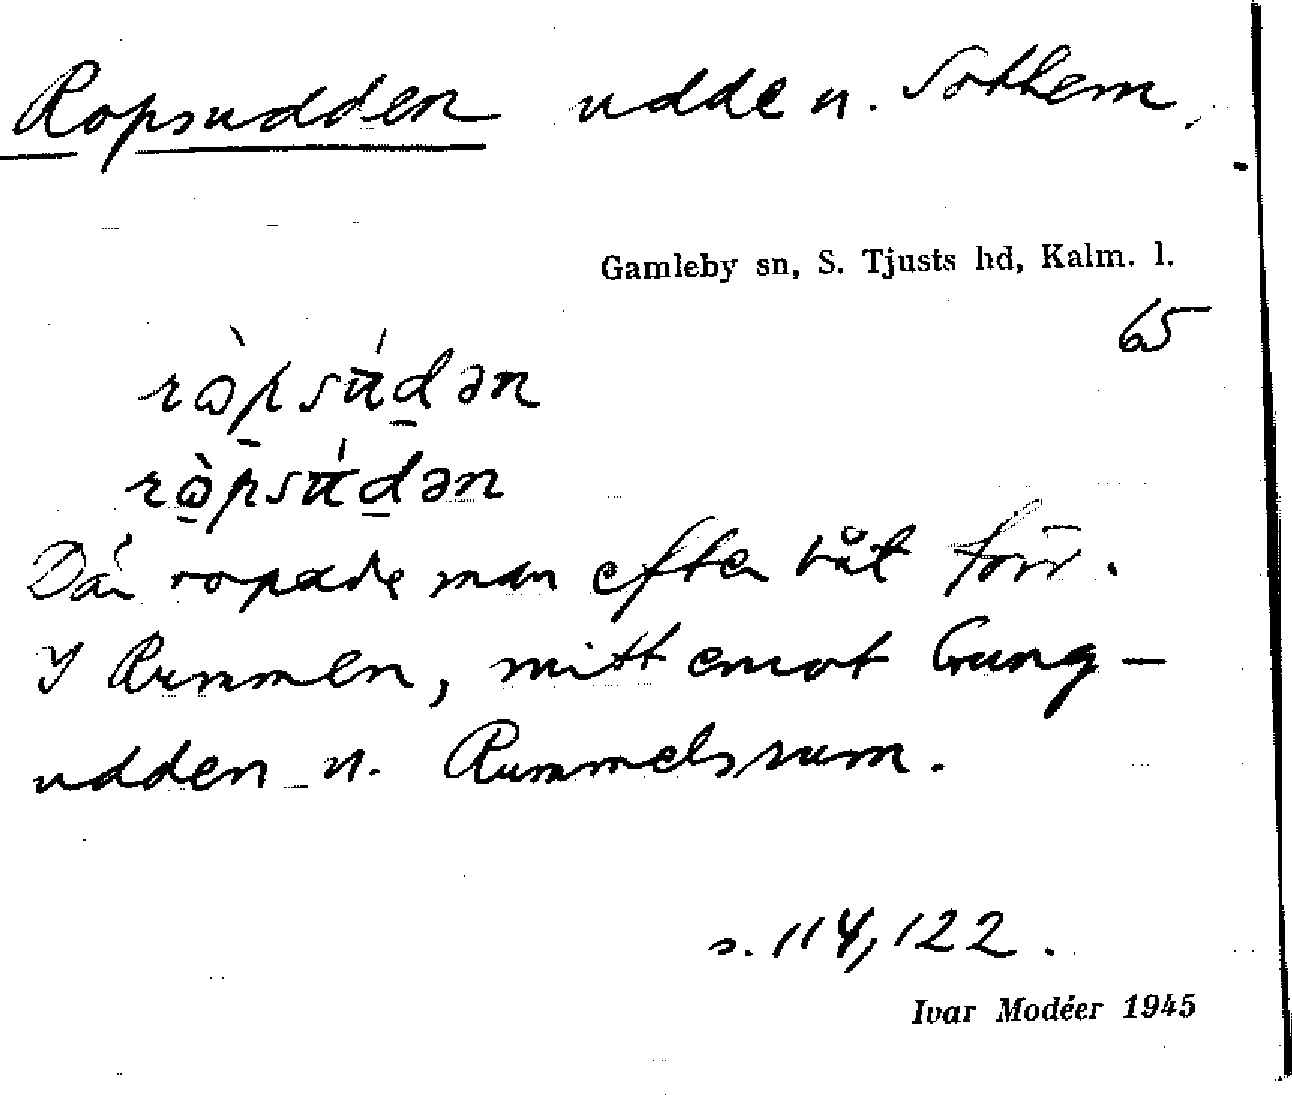 Ropsudden udde n. Sothem.
Gamleby sn, S. Tjusts hd, Kalm. l.
65
Där ropade man efter båt förr.
I Rummen, mitt emot Gung-
udden n. Rummelsrum.
s. 114, 122.
Ivar Modéer 1945